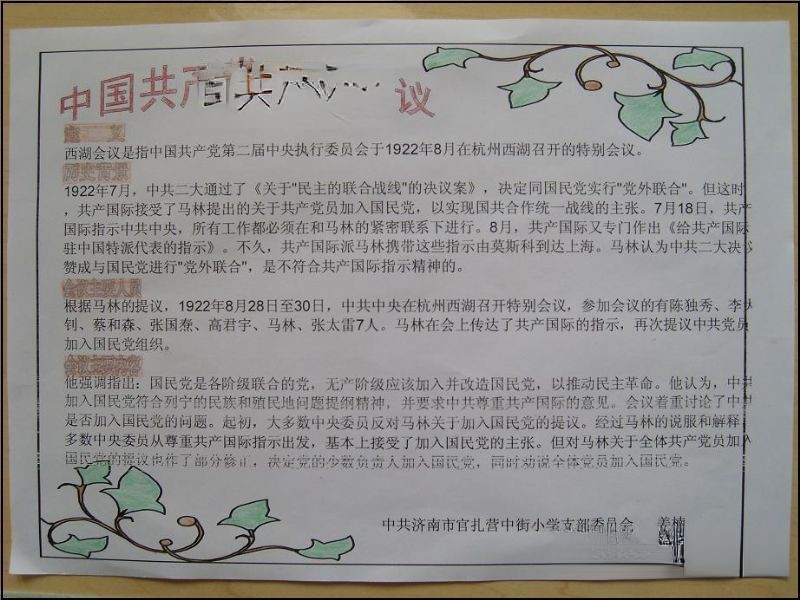 中国共产 议
西湖会议是指中国共产党第二届中央执行委员会于1922年8月在杭州西湖召开的特别会议。
历史背景
1922年7月，中共二大通过了《关于"民主的联合战线"的决议案》，决定同国民党实行"党外联合"。但这时
，共产国际接受了马林提出的关于共产党员加入国民党，以实现国共合作统一战线的主张。7月18日，共产
国际指示中共中央，所有工作都必须在和马林的紧密联系下进行。8月，共产国际又专门作出《给共产国际
驻中国特派代表的指示》。不久，共产国际派马林携带这些指示由莫斯科到达上海。马林认为中共二大决
赞成与国民党进行"党外联合"，是不符合共产国际指示精神的。
会议主要人员
根据马林的提议，1922年8月28日至30日，中共中央在杭州西湖召开特别会议，参加会议的有陈独秀、李
钊、蔡和森、张国焘、高君宇、马林、张太雷7人。马林在会上传达了共产国际的指示，再次提议中共党员
加入国民党组织。
会议主要内容
他强调指出：国民党是各阶级联合的党，无产阶级应该加入并改造国民党，以推动民主革命。他认为，中共
加入国民党符合列宁的民族和殖民地问题提纲精神，并要求中共尊重共产国际的意见。会议着重讨论了中共
是否加入国民党的问题。起初，大多数中央委员反对马林关于加入国民党的提议。经过马林的说服和解释，
多数中央委员从尊重共产国际指示出发，基本上接受了加入国民党的主张。但对马林关于全体共产党员加入
国民党的提议也作了部分修正，决定党的少数负责人加入国民党，同时劝说全体党员加入国民党。
中共济南市官扎营中街小学支部委员会 姜楠